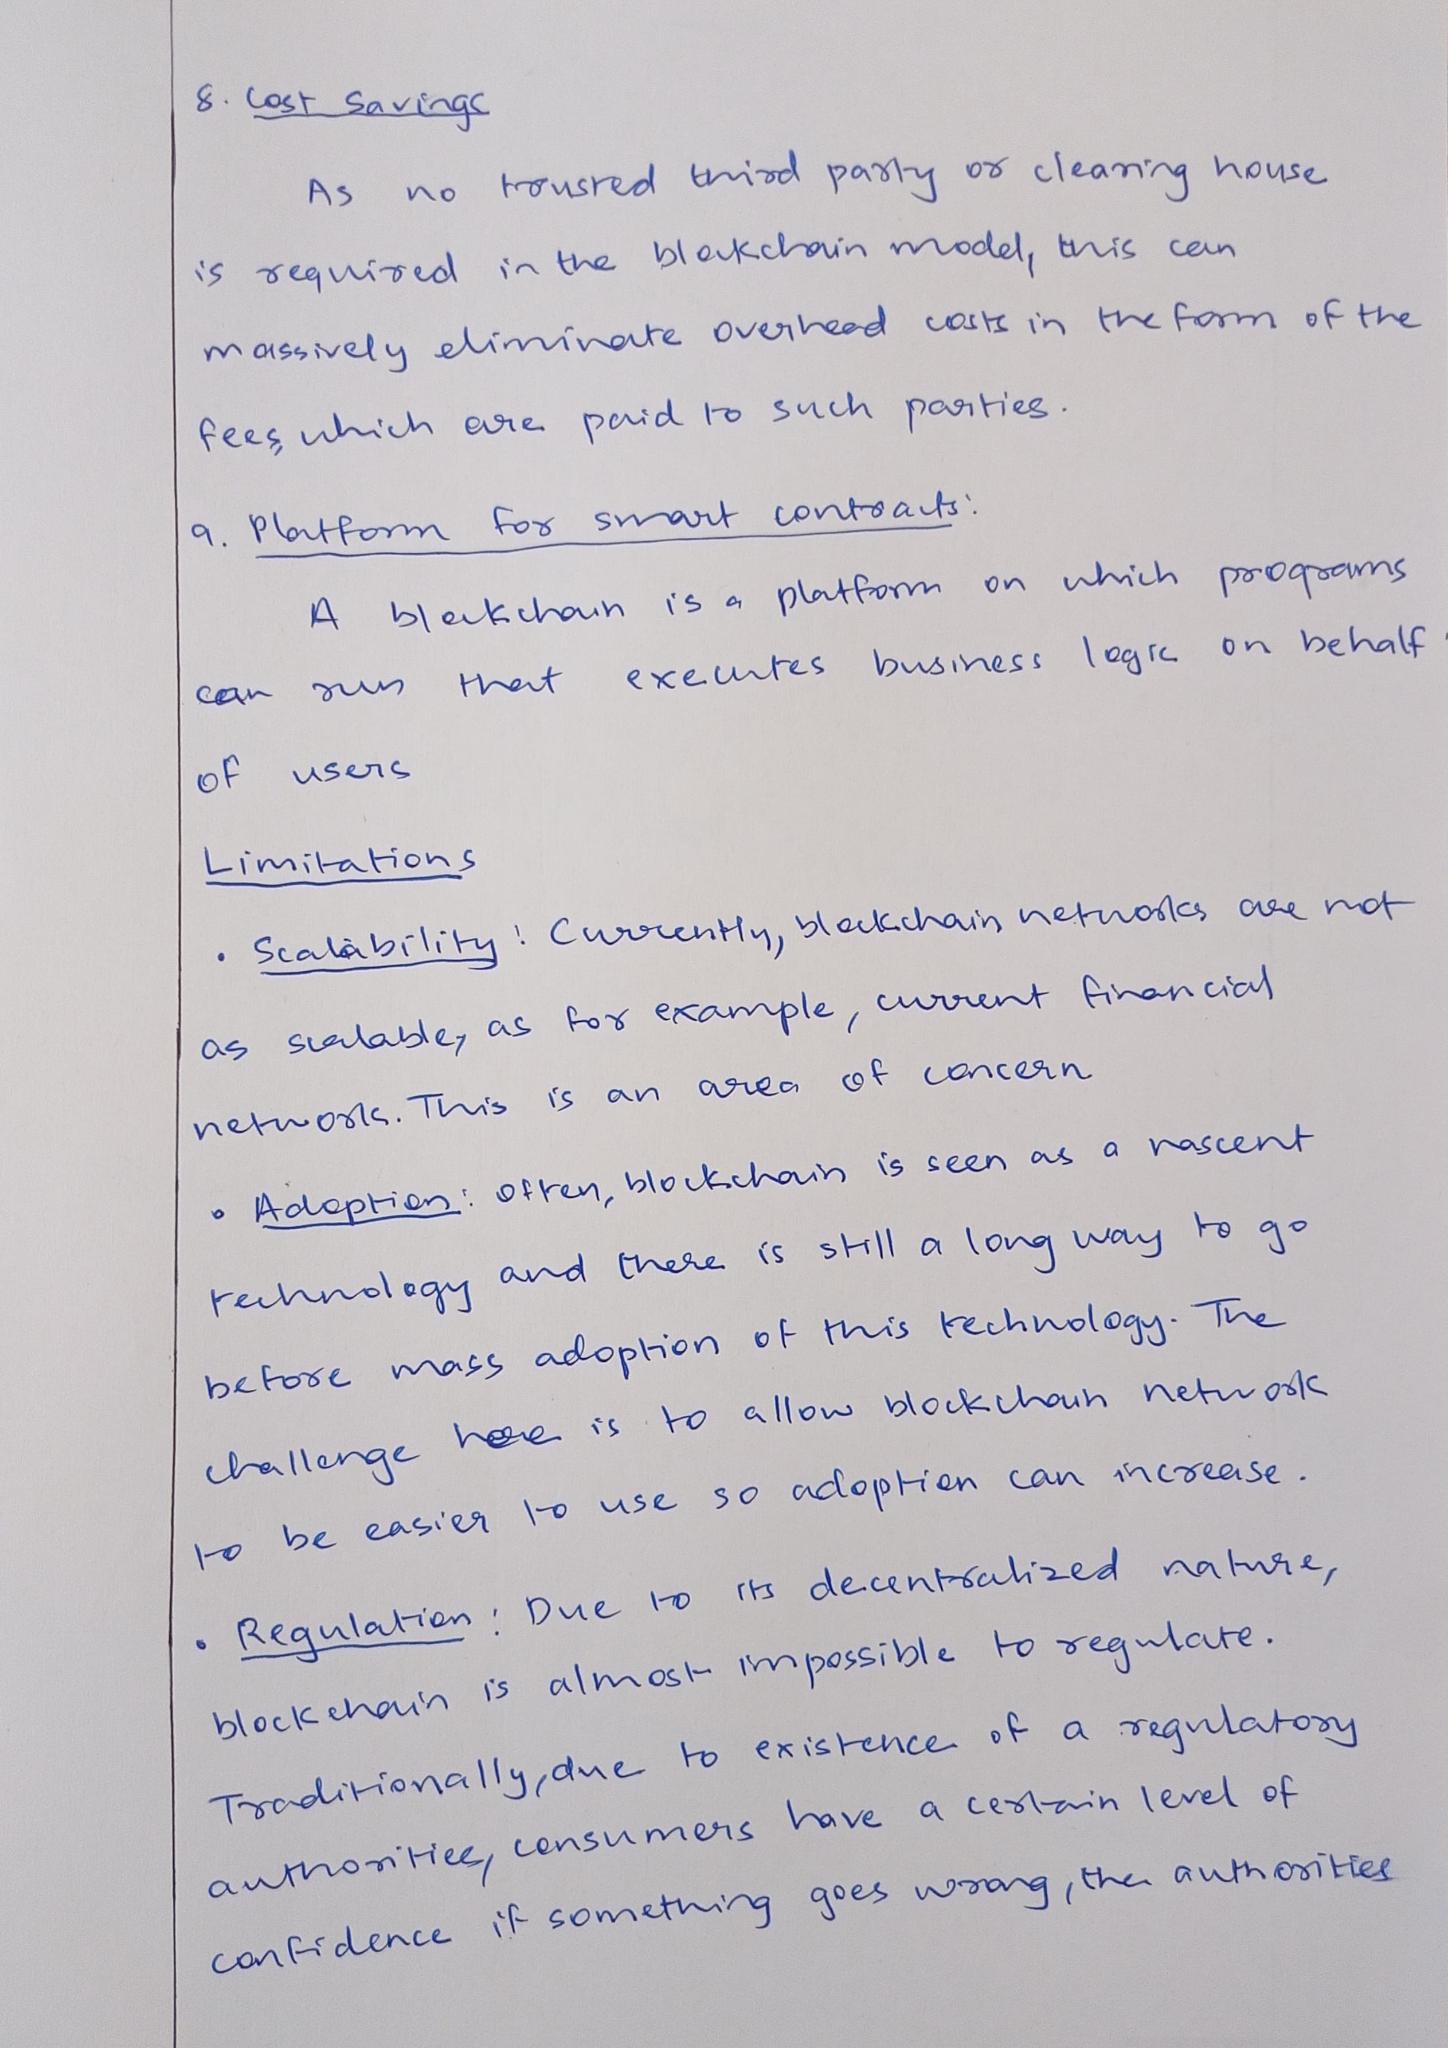 8. Cost Savings
As no trusted third party or clearing house
is required in the blockchain model, this can
massively eliminate overhead costs in the form of the
fees, which are paid to such parties.
9. Platform for smart contracts:
A blockchain is a platform on which programs
can run that executes business logic on behalf
of users
Limitations
• Scalability: Currently, blockchain networks are not
as scalable, as for example, current financial
network. This is an area of concern
• Adoption: often, blockchain is seen as a nascent
technology and there is still a long way to go
before mass adoption of this technology. The
challenge here is to allow blockchain network
to be easier to use so adoption can increase.
• Regulation: Due to its decentralized nature,
blockchain is almost impossible to regulate.
Traditionally, due to existence of a regulatory
authorities, consumers have a certain level of
confidence if something goes wrong, the authorities